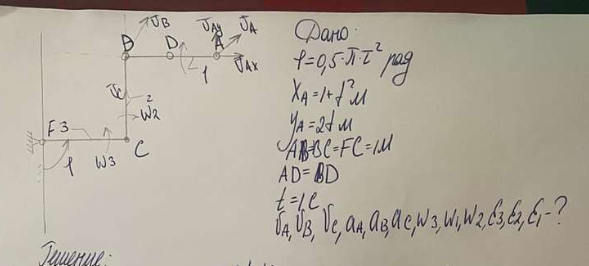 V_B V_Ay V_A
B D A
φ V_Ax
V_C 2
W2
F 3
φ W3 C
Дано:
φ=0,5·π·t² рад
X_A=1+t² м
y_A=2t м
AB=BC=FC=1м
AD=BD
t=1c
V_A, V_B, V_C, a_A, a_B, a_C, W3, W1, W2, ε3, ε2, ε1-?
Решение: